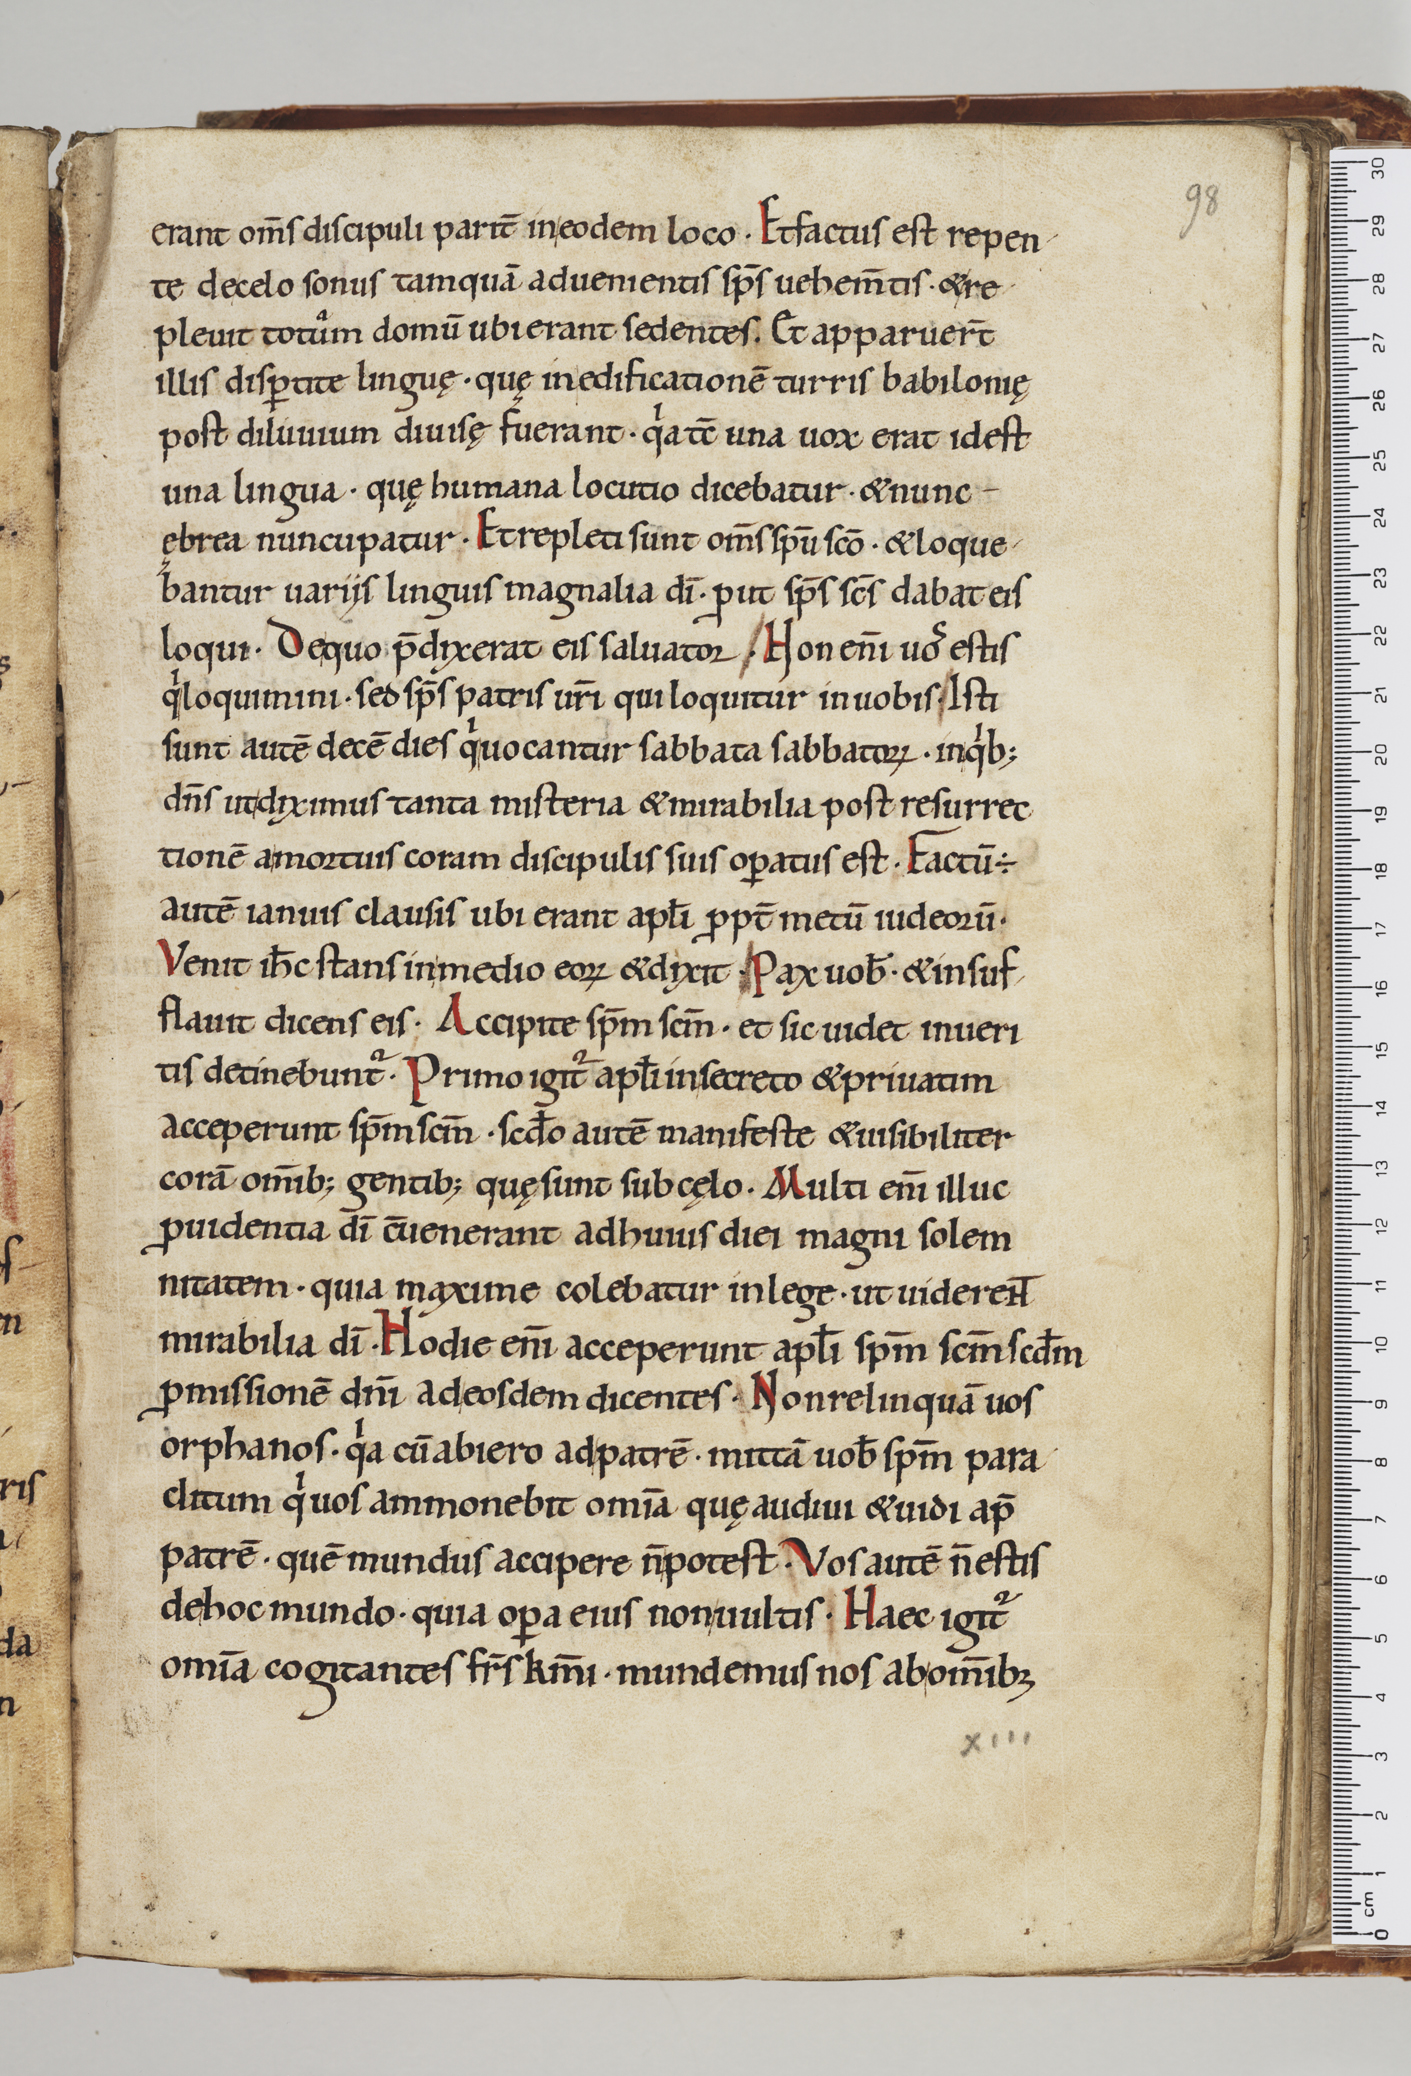 98
erant om̄s discipuli parit̄ in eodem loco · Et factus est repen
te de celo sonus tamquā aduenientis sp̄s uehem̄tis · & re
pleuit totum domū ubi erant sedentes. Et apparuer̄t
illis disꝑtite linguę · quę in edificationē turris babilonię
post diluuium diuisę fuerant · qͥa tc̄ una uox erat idest
una lingua · quę humana locutio dicebatur · & nunc
ębrea nuncupatur · Et repleti sunt om̄s spū scō · & loque
bantur uariis linguis magnalia dī · ꝓut sp̄s sc̄s dabat eis
loqui · De quo p̄dixerat eis saluator / Hon enī uos estis
qͥ loquimini · sed sp̄s patris ur̄i qui loquitur in uobis · Isti
sunt autē decē dies qͥ uocantur sabbata sabbatoꝝ · in qͥb;
dn̄s ut diximus tanta misteria & mirabilia post resurrec
tionē a mortuis coram discipulis suis oꝑatus est · Factū ÷
autē ianuis clausis ubi erant apl̄i ꝓpt̄ metū iudeorū ·
Venit ih̄c stans in medio eoꝝ & dixit · Pax uob̄ · & insuf
flauit dicens eis · Accipite sp̄m scm̄ · et sic uidet in ueri
tis detinebunt᷑ · Primo igit᷑ apl̄i in secreto & priuatim
acceperunt sp̄m scm̄ · scd̄o autē manifeste & uisibiliter
corā om̄ib; gentib; quę sunt sub cęlo · Multi enī illuc
ꝓuidentia dī c̄uenerant ad huius diei magni solem
nitatem · quia maxime colebatur in lege · ut uiderent
mirabilia dī · Hodie enī acceperunt apl̄i sp̄m scm̄ scd̄m
ꝓmissionē dn̄i ad eosdem dicentes · Non relinquā uos
orphanos · qͥa cū abiero ad patrē · mittā uob̄ sp̄m para
clitum qͥ uos ammonebit omīa quę audiui & uidi ap̄
patrē · quē mundus accipere n̄ potest · Vos autē n̄ estis
de hoc mundo · quia oꝑa eius non uultis · Haec igit᷑
omīa cogitantes fr̄s km̄i · mundemus nos ab om̄ibꝫ
xiii